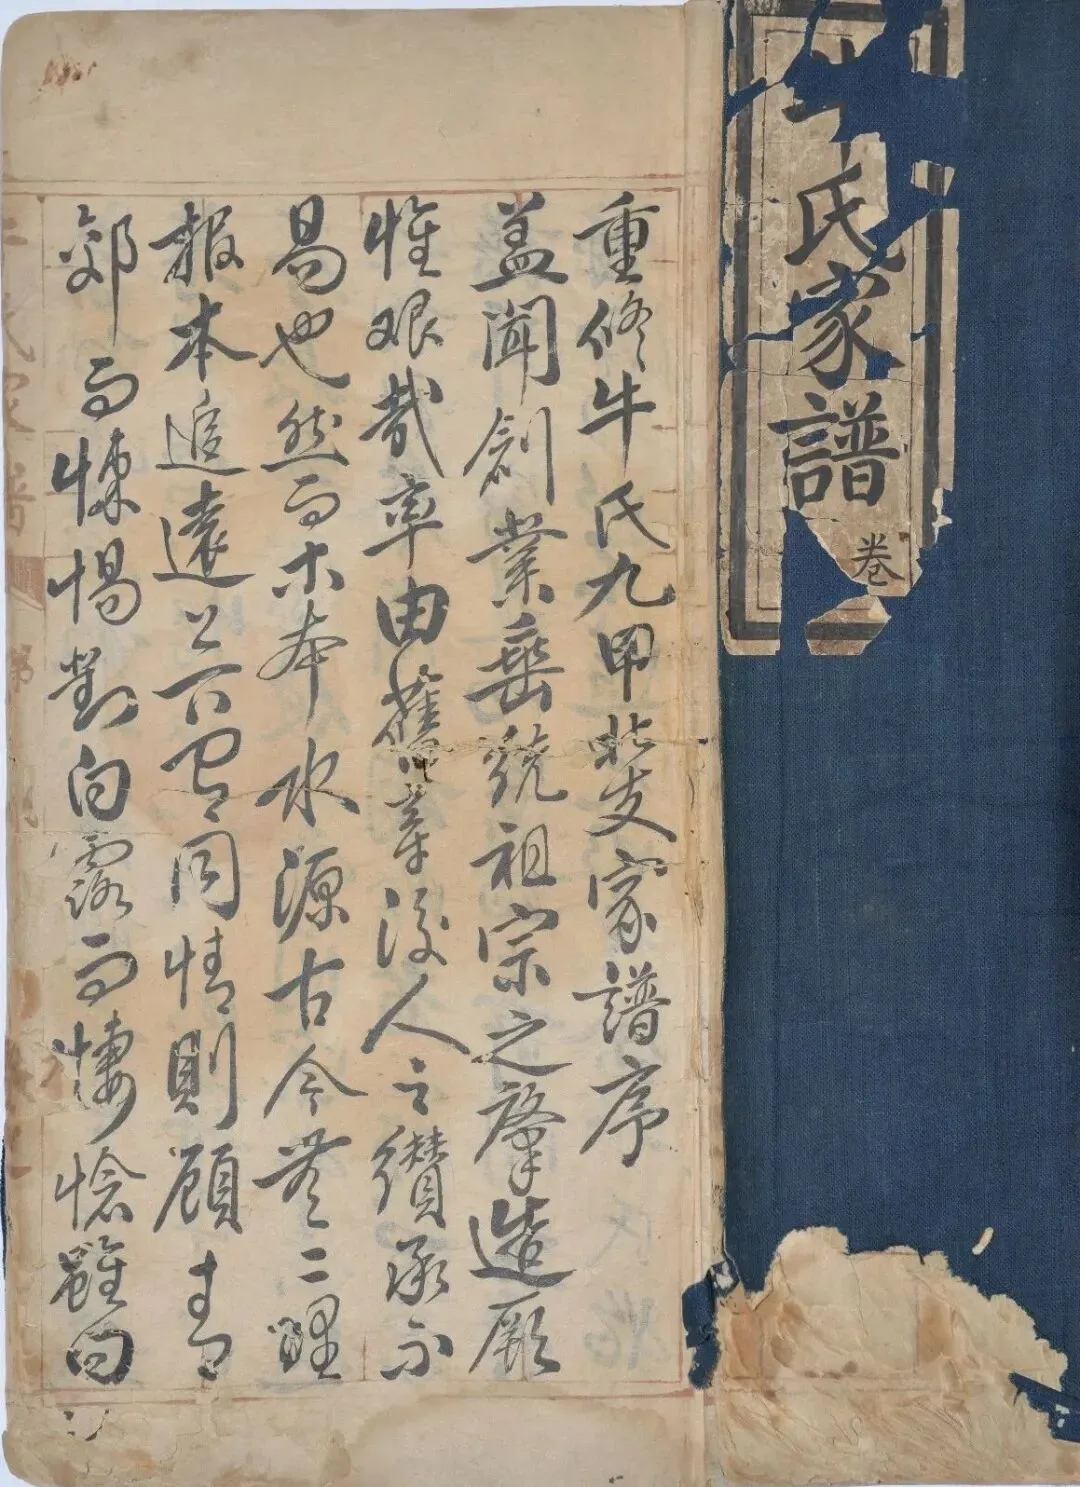 氏家譜
卷
重修牛氏九甲北支家譜序
蓋聞創業垂統祖宗之肇造厥
惟艱哉率由舊章後人之纘承不
易也然而木本水源古今無二理
報本追遠同情則顧青
郊而悚惕對白露而悽愴雖曰